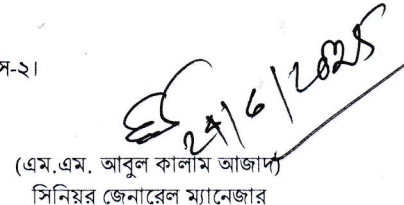 স-২।
২৭/৬/২০২৫
(এম.এম. আবুল কালাম আজাদ)
সিনিয়র জেনারেল ম্যানেজার